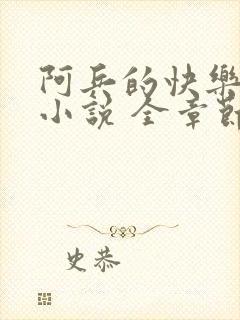 阿兵的快樂
小說 全章節
史恭